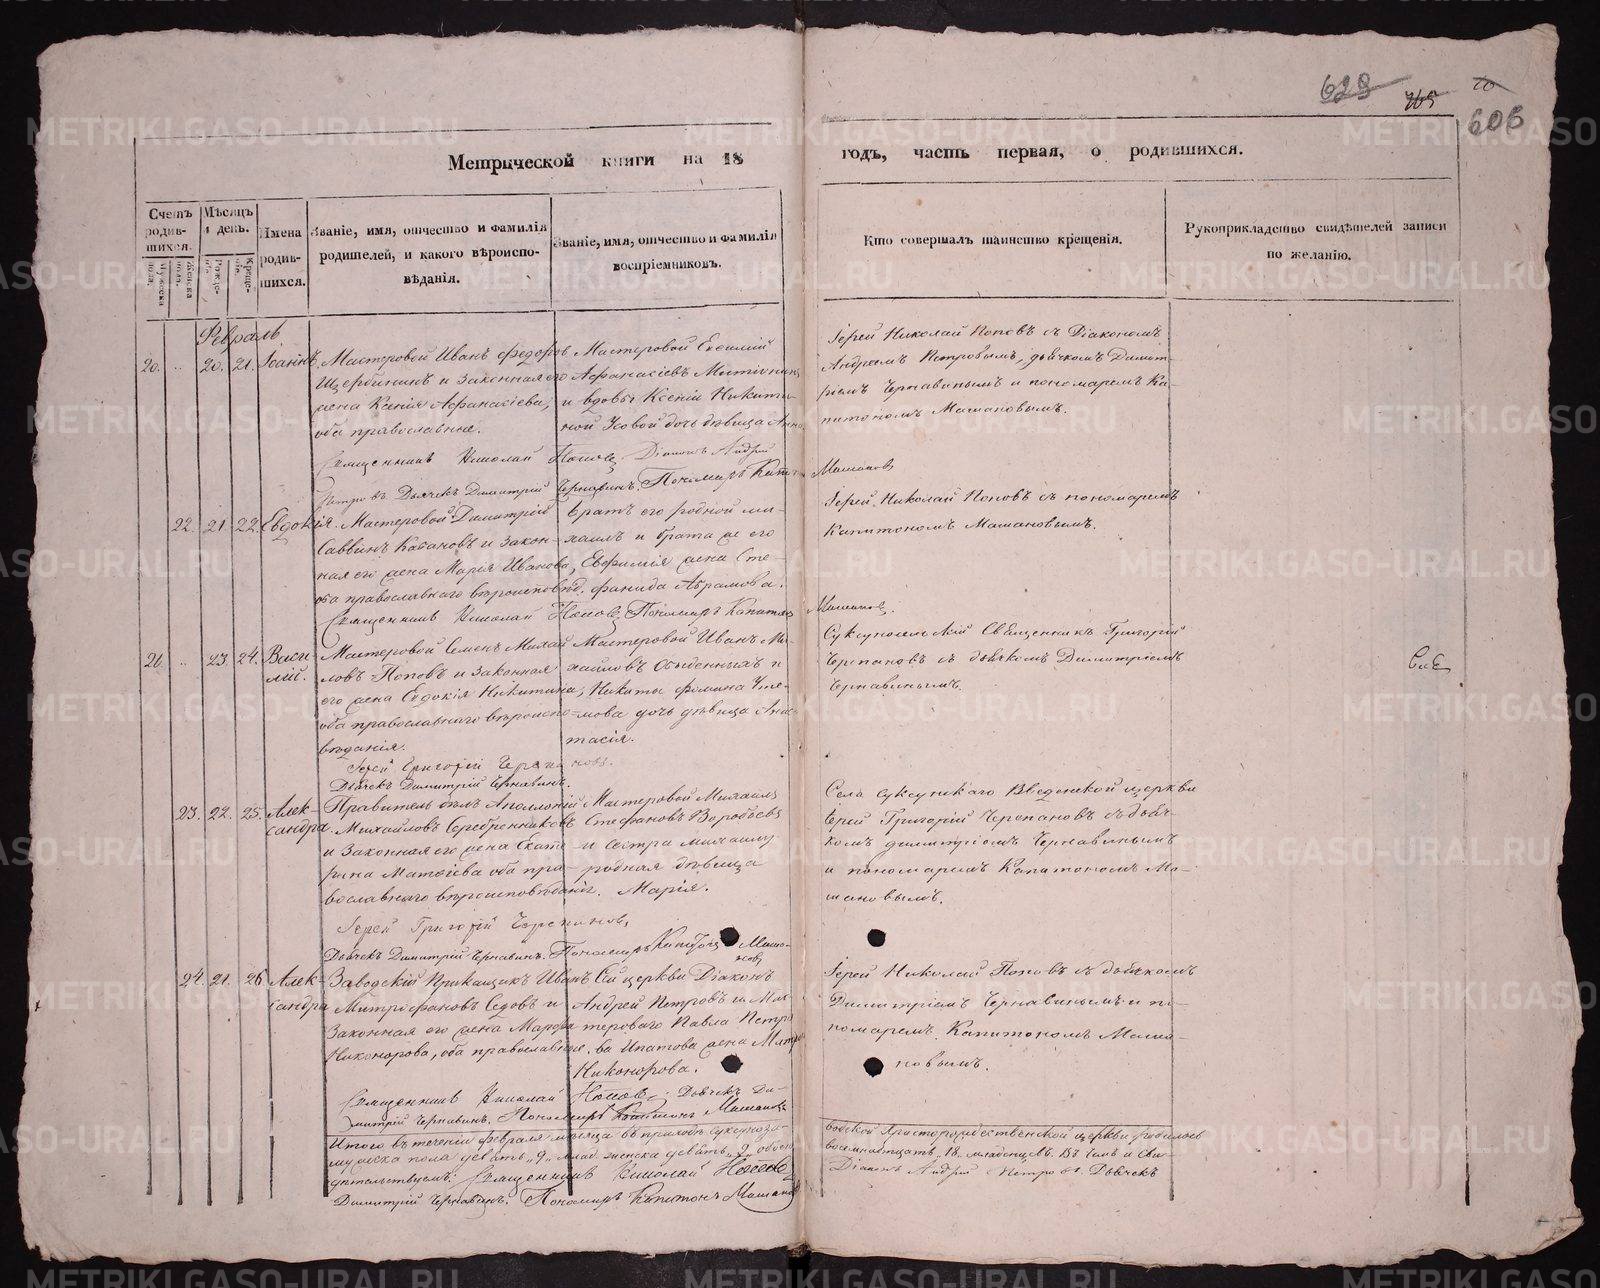 628 765 20
606
Метрической книги на 18 годъ, часть первая, о родившихся.
Счетъ родившихся.
Мужеска пола.
Женска пола.
Мѣсяцъ и день.
Рожде-
Креще-
Имена родившихся.
Званіе, имя, отчество и фамилія родителей, и какого вѣроисповѣданія.
Званіе, имя, отчество и фамилія воспріемниковъ.
Кто совершалъ таинство крещенія.
Рукоприкладство свидѣтелей записи по желанію.
Февраль
20. 20. 21. Іоаннъ.
Мастеровой Иванъ Федоровъ
Щербининъ и законная его
жена Ксенія Афанасіева,
оба православные.
Мастеровой Евсигній
Афанасіевъ
и вдовы Ксеніи Никити-
ной Усовой дочь дѣвица Анна
Іерей Николай Поповъ съ Діакономъ
Андреемъ Петровымъ, дьячкомъ Димит-
ріемъ Чернавинымъ и пономаремъ Ка-
питономъ Машановымъ.
Священникъ Николай Поповъ Діаконъ Андрей
Петровъ Дьячекъ Димитрій Чернавинъ. Пономарь Капитонъ Машановъ
22. 21. 22. Евдокія.
Мастеровой Димитрій
Саввинъ Кабановъ и закон-
ная его жена Марія Иванова,
оба православнаго вѣроисповѣд.
Братъ его родной ми-
хаилъ и брата же его
Евфимія жена Сте-
фанида Абрамова.
Іерей Николай Поповъ съ пономаремъ
Капитономъ Машановымъ.
Священникъ Николай Поповъ Пономарь Капитонъ Машановъ.
21. 23. 24. Васи-
лій.
Мастеровой Семенъ Михай
ловъ Поповъ и законная
его жена Евдокія Никитина,
оба православнаго вѣроиспо-
вѣданія.
Мастеровой Иванъ Ми-
хаиловъ Обыденныхъ и
Никиты Фомина Уте-
мова дочь дѣвица Анас-
тасія.
Суксунскій Священникъ Григорій
Черепановъ съ дьячкомъ Димитріемъ
Чернавинымъ.
Іерей Григорій Черепановъ.
Дьячекъ Димитрій Чернавинъ.
23. 22. 25. Алек-
сандра
Правитель дѣлъ Аполлоній
Михайловъ Серебренниковъ
и Законная его жена Екате-
рина Матѳіева оба пра-
вославнаго вѣроисповѣданія.
Мастеровой Михаилъ
Стефановъ Воробьевъ
и Сестра Михаилу
родная дѣвица
Марія.
Села Суксунскаго Введенской церкви
Іерей Григорій Черепановъ съ дьяч-
комъ Димитріемъ Чернавинымъ
и пономаремъ Капитономъ Ма-
шановымъ.
Іерей Григорій Черепановъ,
Дьячекъ Димитрій Чернавинъ. Пономарь Капитонъ Машановъ
24. 21. 26. Алек-
сандра
Заводскій Прикащикъ Иванъ
Митрофановъ Седовъ и
Законная его жена Марѳа
Никонорова, оба православные.
Сей церкви Діаконъ
Андрей Петровъ и Мас-
тероваго Павла Петро
ва Ипатова жена
Никонорова.
Іерей Николай Поповъ съ дьячкомъ
Димитріемъ Чернавинымъ и по-
номаремъ Капитономъ Маша-
новымъ.
Священникъ Николай Поповъ. Дьячекъ Ди-
митрій Чернавинъ. Пономарь Капитонъ Машановъ
Итого въ теченіи февраля мѣсяца въ приходѣ
водской Христорождественской церкви родилось
мужска пола девять „9„ млад. женска девять „9„ обоего
восемнатцать „18„ младенцевъ. Въ чемъ и сви-
дѣтельствуемъ: Священникъ Николай Поповъ
Діаконъ Андрей Петровъ. Дьячекъ
Димитрій Чернавинъ. Пономарь Капитонъ Машановъ
METRIKI.GASO-URAL.RU